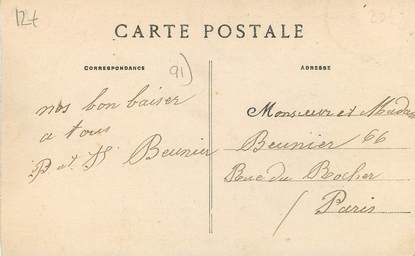 12t
CARTE POSTALE
CORRESPONDANCE
91)
ADRESSE
nos bon baiser
a tous
P et Beunier
Monsieur et Madam
Beunier 66
Rue du Rocher
Paris